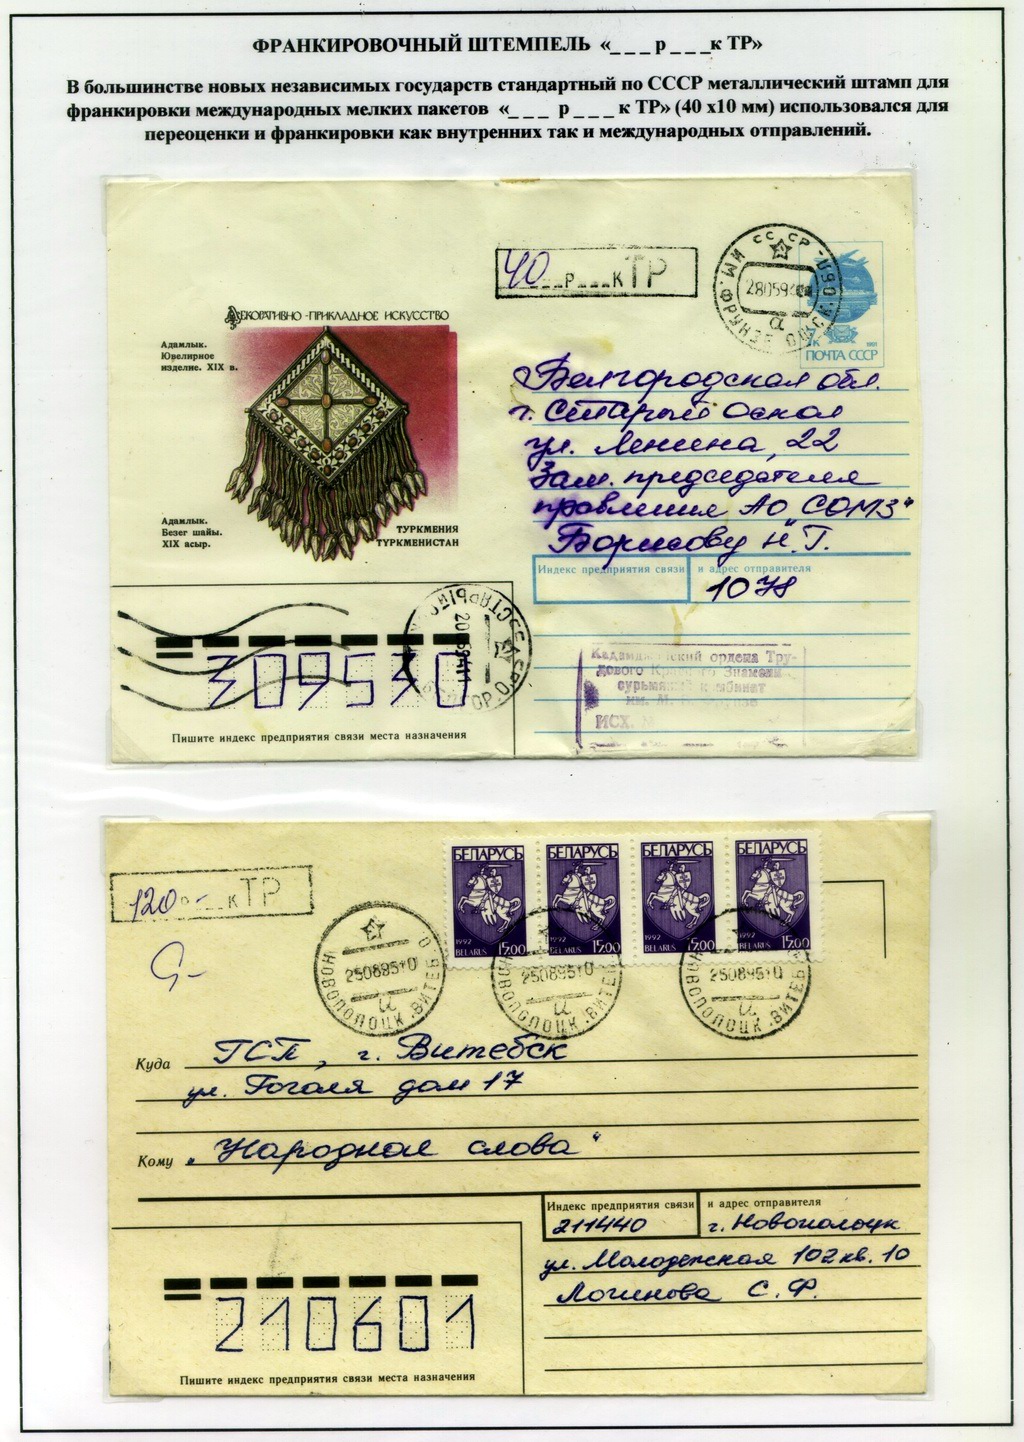 ФРАНКИРОВОЧНЫЙ ШТЕМПЕЛЬ «_ _ _ р _ _ _к ТР»
В большинстве новых независимых государств стандартный по СССР металлический штамп для
франкировки международных мелких пакетов «_ _ _ р _ _ _ к ТР» (40 х10 мм) использовался для
переоценки и франкировки как внутренних так и международных отправлений.
40 _ _р_ _ _к ТР
СССР
ИМ.ФРУНЗЕ ОШСК.ОБЛ
280594
а
7к
1991
ПОЧТА СССР
ДЕКОРАТИВНО-ПРИКЛАДНОЕ ИСКУССТВО
Адамлык.
Ювелирное
изделие. XIX в.
Адамлык.
Безег шайы.
XIX асыр.
ТУРКМЕНИЯ
ТУРКМЕНИСТАН
Белгородская обл.
г. Старый Оскол
ул. Ленина, 22
Зам. председателя
правления АО "СОМЗ"
Борисову Н.Г.
Индекс предприятия связи
и адрес отправителя
1078
309530
Пишите индекс предприятия связи места назначения
Кадамджайский ордена Тру-
дового Красного Знамени
сурьмяный комбинат
им. М. В. Фрунзе
ИСХ. №
120- к ТР
БЕЛАРУСЬ БЕЛАРУСЬ БЕЛАРУСЬ БЕЛАРУСЬ
1992 BELARUS 15.00 1992 BELARUS 15.00 1992 BELARUS 15.00 1992 BELARUS 15.00
НОВОПОЛОЦК .ВИТЕБ. О.
25089510
и
НОВОПОЛОЦК .ВИТЕБ
25089510
и
НОВОПОЛОЦК .ВИТЕБ
25089510
и
Куда ГСП, г. Витебск
ул. Гоголя дом 17
Кому „Народная слова"
Индекс предприятия связи
и адрес отправителя
211440 г. Новополоцк
ул. Молодежная 102 кв. 10
Логинова С. Ф.
210601
Пишите индекс предприятия связи места назначения